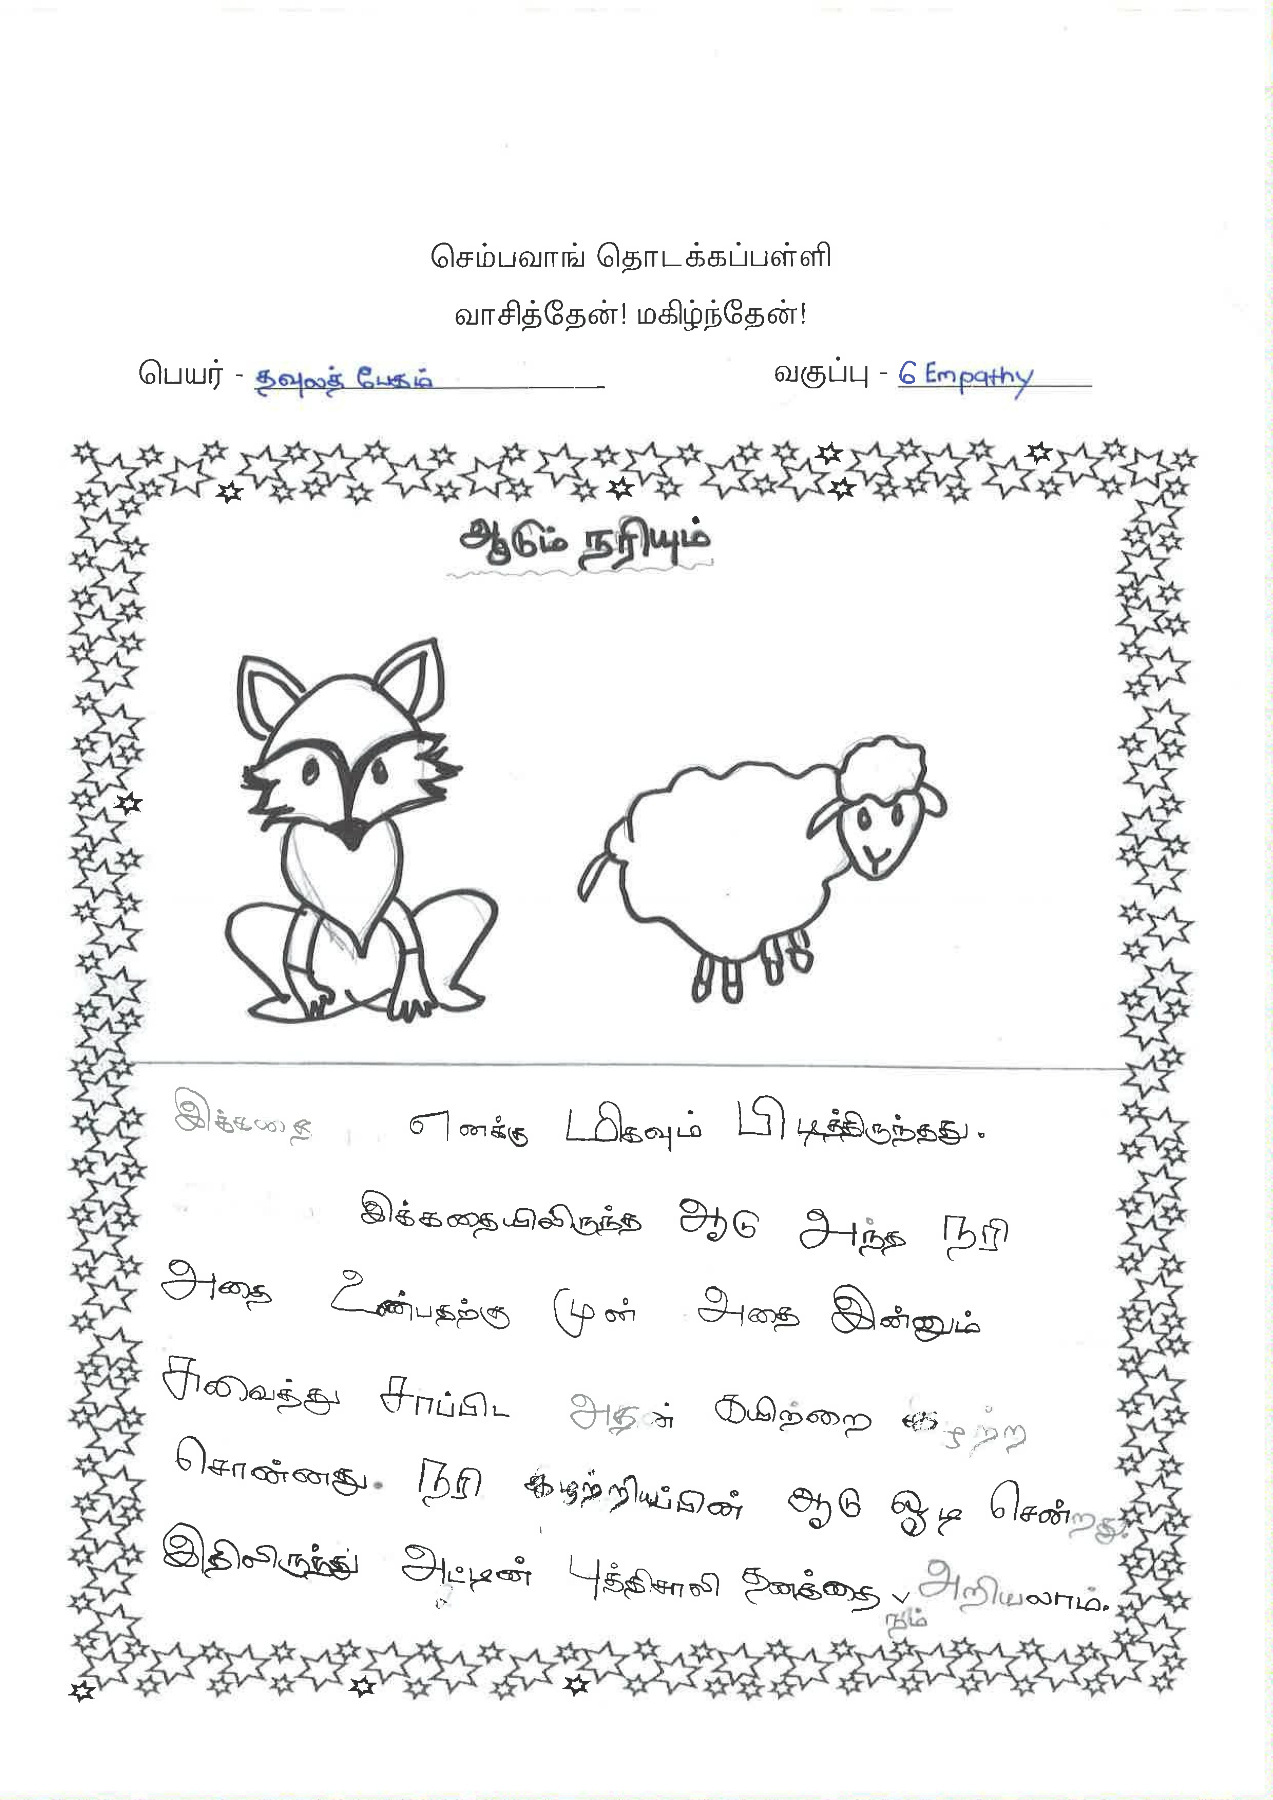 செம்பவாங் தொடக்கப்பள்ளி
வாசித்தேன்! மகிழ்ந்தேன்!
பெயர் - தவுலத் பேகம் வகுப்பு - 6 Empathy
ஆடும் நரியும்
இக்கதை எனக்கு மிகவும் பிடித்திருந்தது.
இக்கதையிலிருந்த ஆடு அந்த நரி
அதை உண்பதற்கு முன் அதை இன்னும்
சுவைத்து சாப்பிட அதன் கயிற்றை கழற்ற
சொன்னது. நரி கழற்றியப்பின் ஆடு ஓடி சென்றது.
இதிலிருந்து அட்டின் புத்திசாலி தனத்தை அறியலாம்.
நாம்